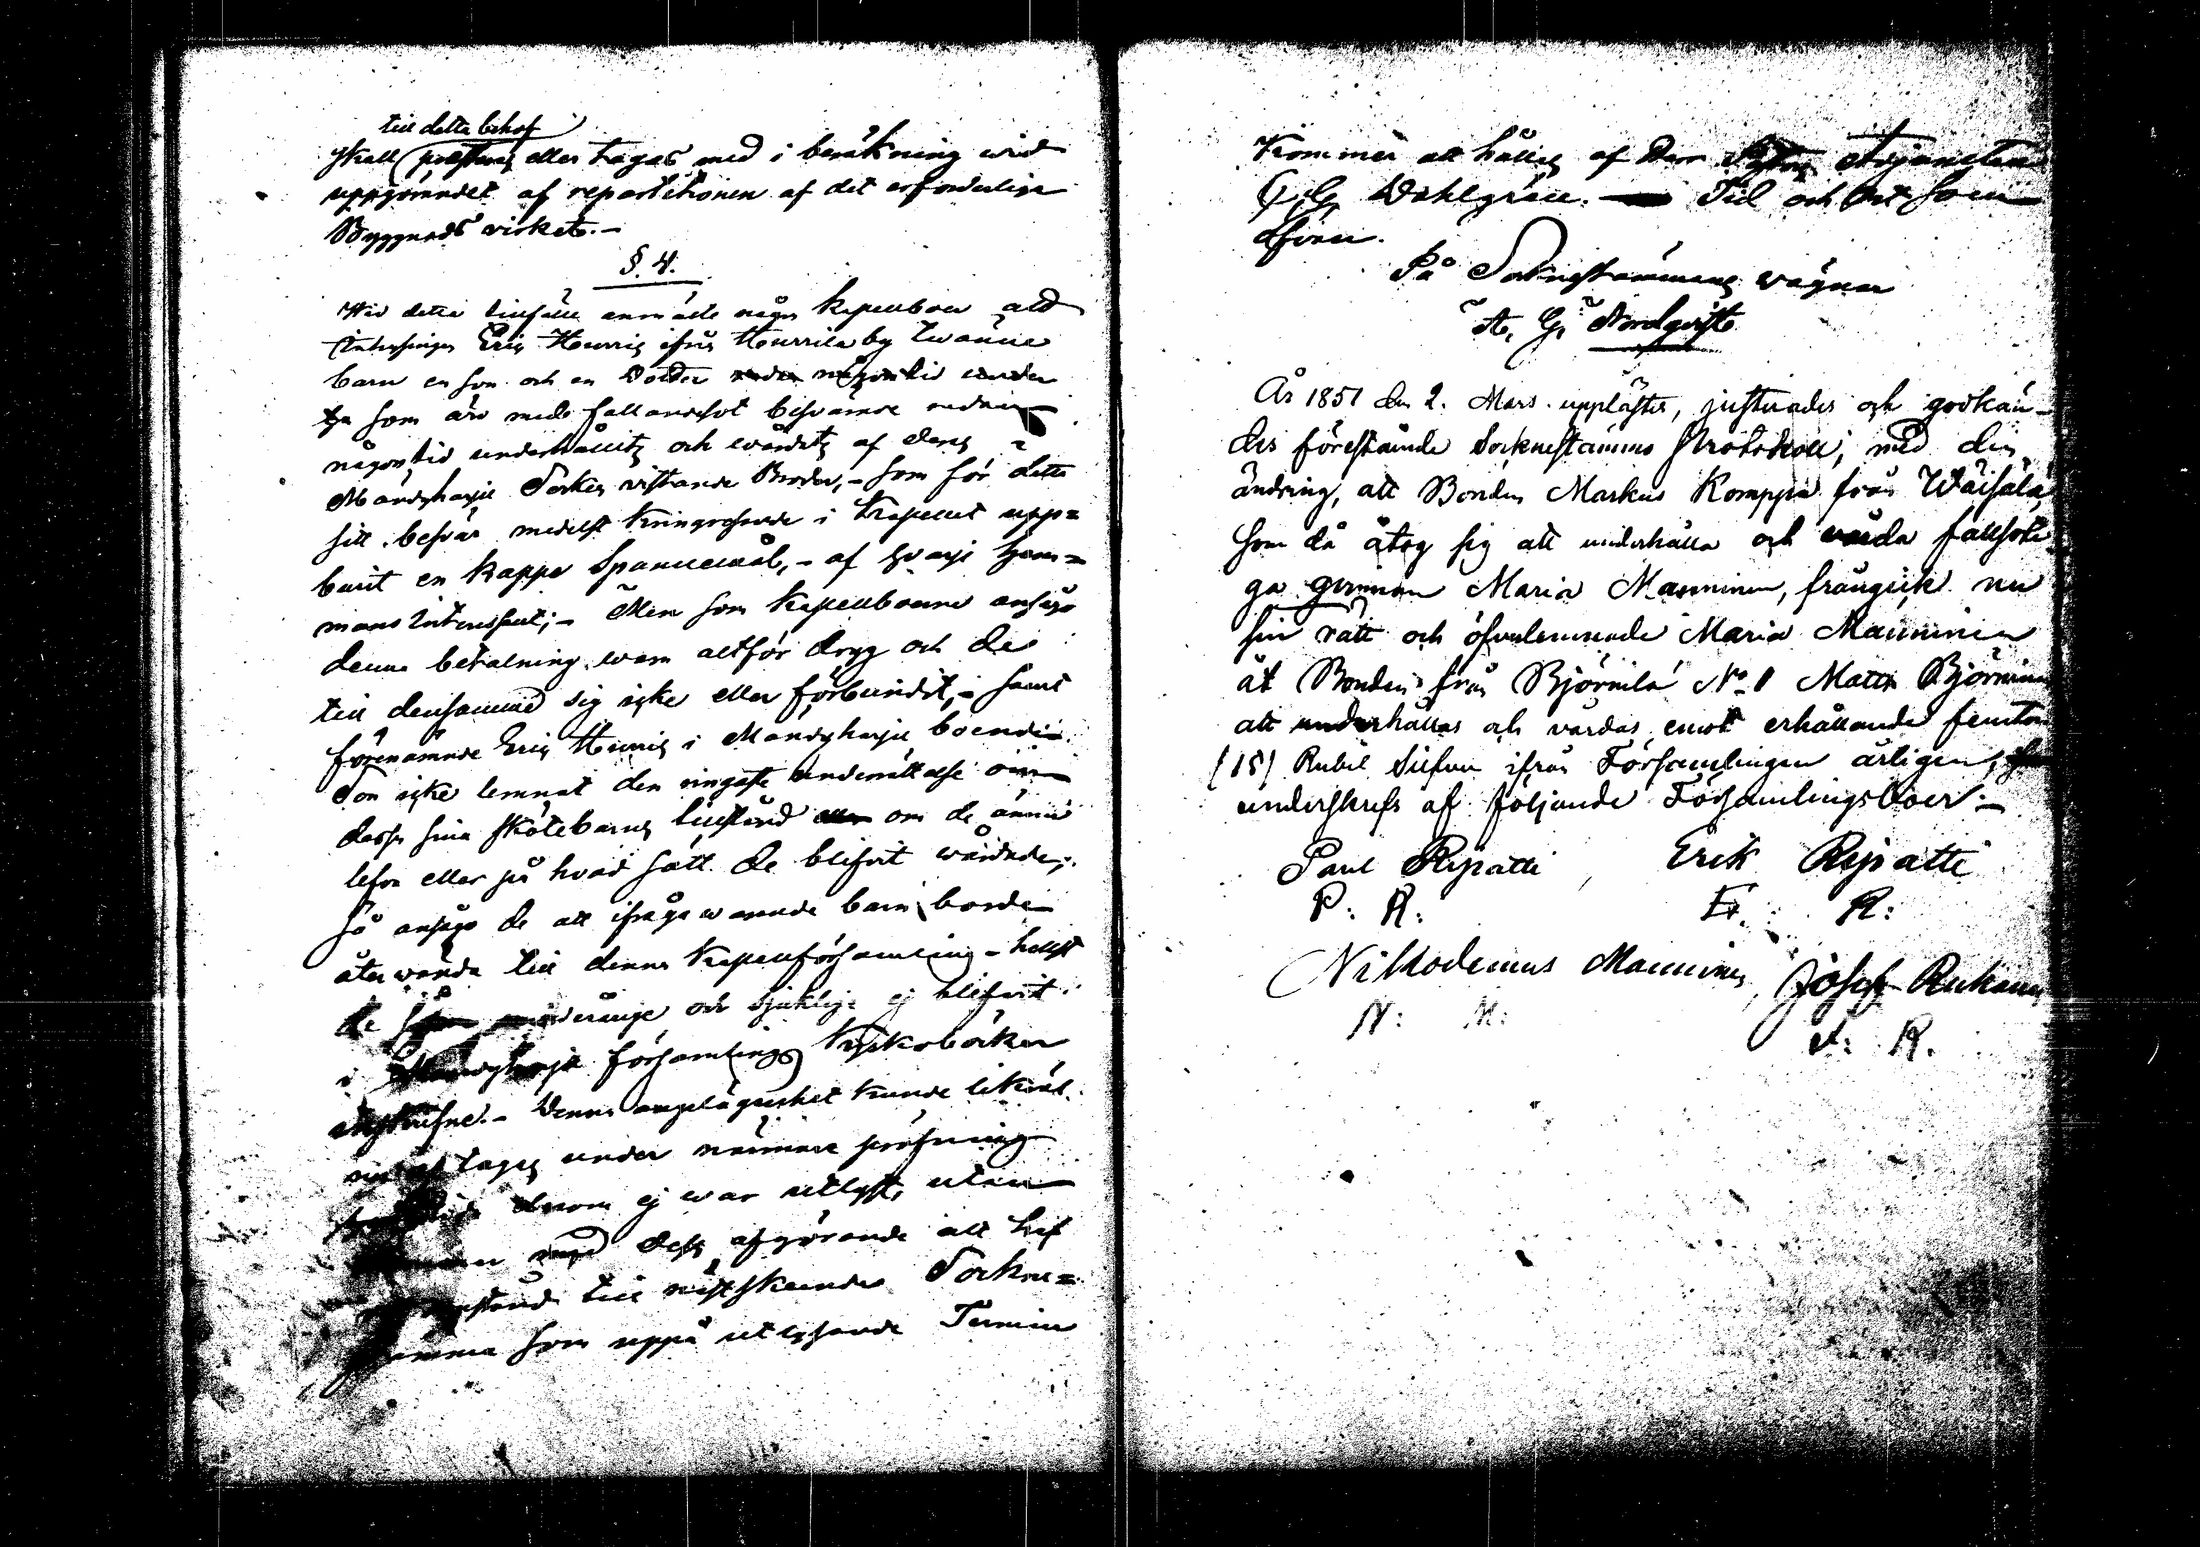 till detta behof
skall presteras eller tagas med i beräkning wid
uppgörandet af repartitionen af det erforderliga
Byggnads virket.-
§. 4.
Wid detta tillfälle anmälde någre kapellboer att
Inhysingen Erig Hurrig ifrån Hurrila by twänne
barn en son och en Dotter någon tid
som äro med fallandesot besvärade
någon tid underhållits och wårdats af deras i
Mäntyharju Socken vistande Broder, - som för detta
sitt besvär medelst kringresande i Kapellet upp=
burit en kappe Spannemål, - af hvarje hem=
mans Interessent; - Men som kapellboerne ansågo
denna betalning wara alltför dryg och de
till densamma sig icke eller förbundit, - samt
förenämnde Erig Hurrig i Mäntyharju boende
Son icke lemnat den ringaste underrättelse om
desse sina skötebarns tillstånd om de ännu
lefva eller på hvad sätt de blifvit wårdade,
så ansågo de att ifrågawarande barn borde
återwända till denna Kapellförsamling - helst
de och sjuklige ej blifvit
i Mäntyharju församlings Kyrkoböcker
inskrifne. - Denna angelägenhet kunde likväl
tagas under närmare pröfning
derom ej war utlyst, utan
med dess afgörande att haf
anstånd till nästskeende Sockne=
stämma som uppå utlysande Termin
Kommer att hållas af Herr Adjuncten
G. G. Dahlgrén. Tid och Ort som
ofvan.
På Socknestämmans wägnar
A. G. Nordqvist
År 1851 den 2. Mars upplästes, justerades och godkän-
des förestående Socknestämmo Protokoll, med den
ändring, att Bonden Markus Komppa från Wäisälä,
som då åtog sig att underhålla och vårda fallsoti-
ga Maria Manninen, frångick nu
sin rätt och öfverlemnade Maria Manninen
åt Bonden från Björnilä No 1 Matts Björninen
att underhållas och vårdas emot erhållande femton
(15) Rubel Silfver ifrån Församlingen årligen,
underskrefs af följande Församlingsboer:
Paul Ripatti, Erik Ripatti
P: R: E: R:
Nikodemus Manninen, Josef Rukanen
N: M: J: R.